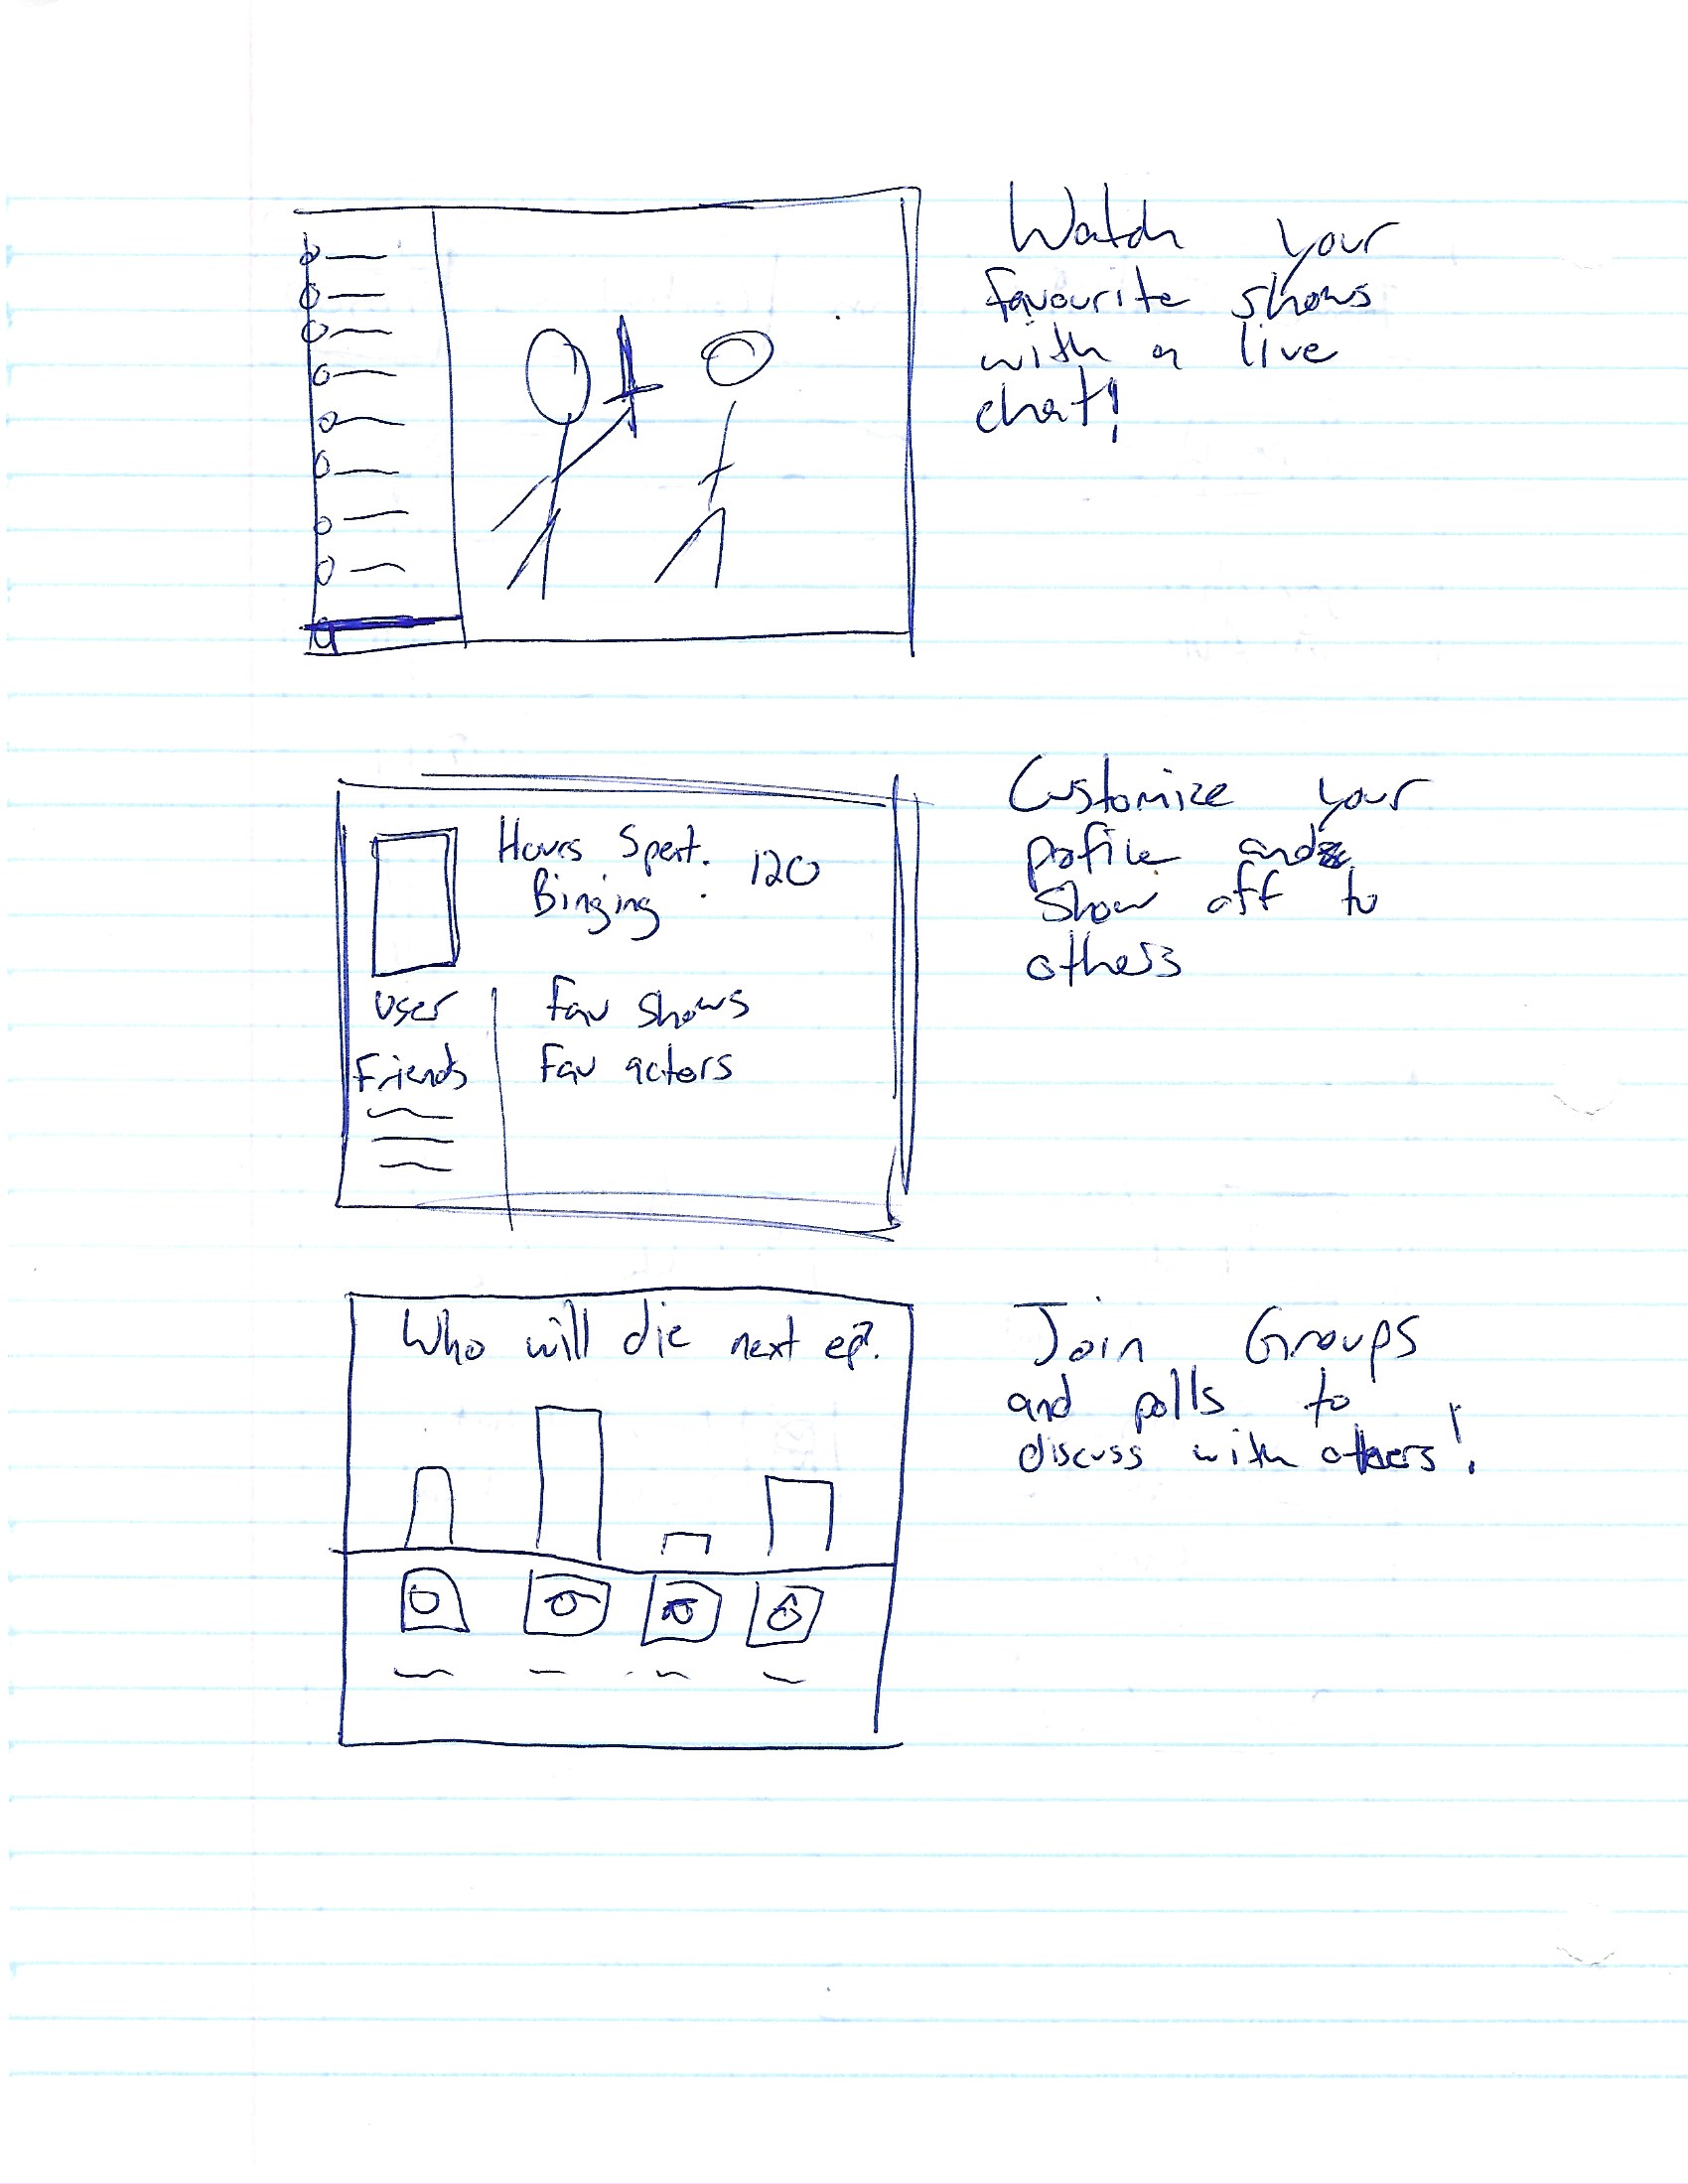 Watch your
favourite shows
with a live
chat!
Hours Spent
Binging : 120
User
Friends
Fav shows
Fav actors
Customize your
profile and
show off to
others
Who will die next ep?
Join Groups
and polls to
discuss with others!